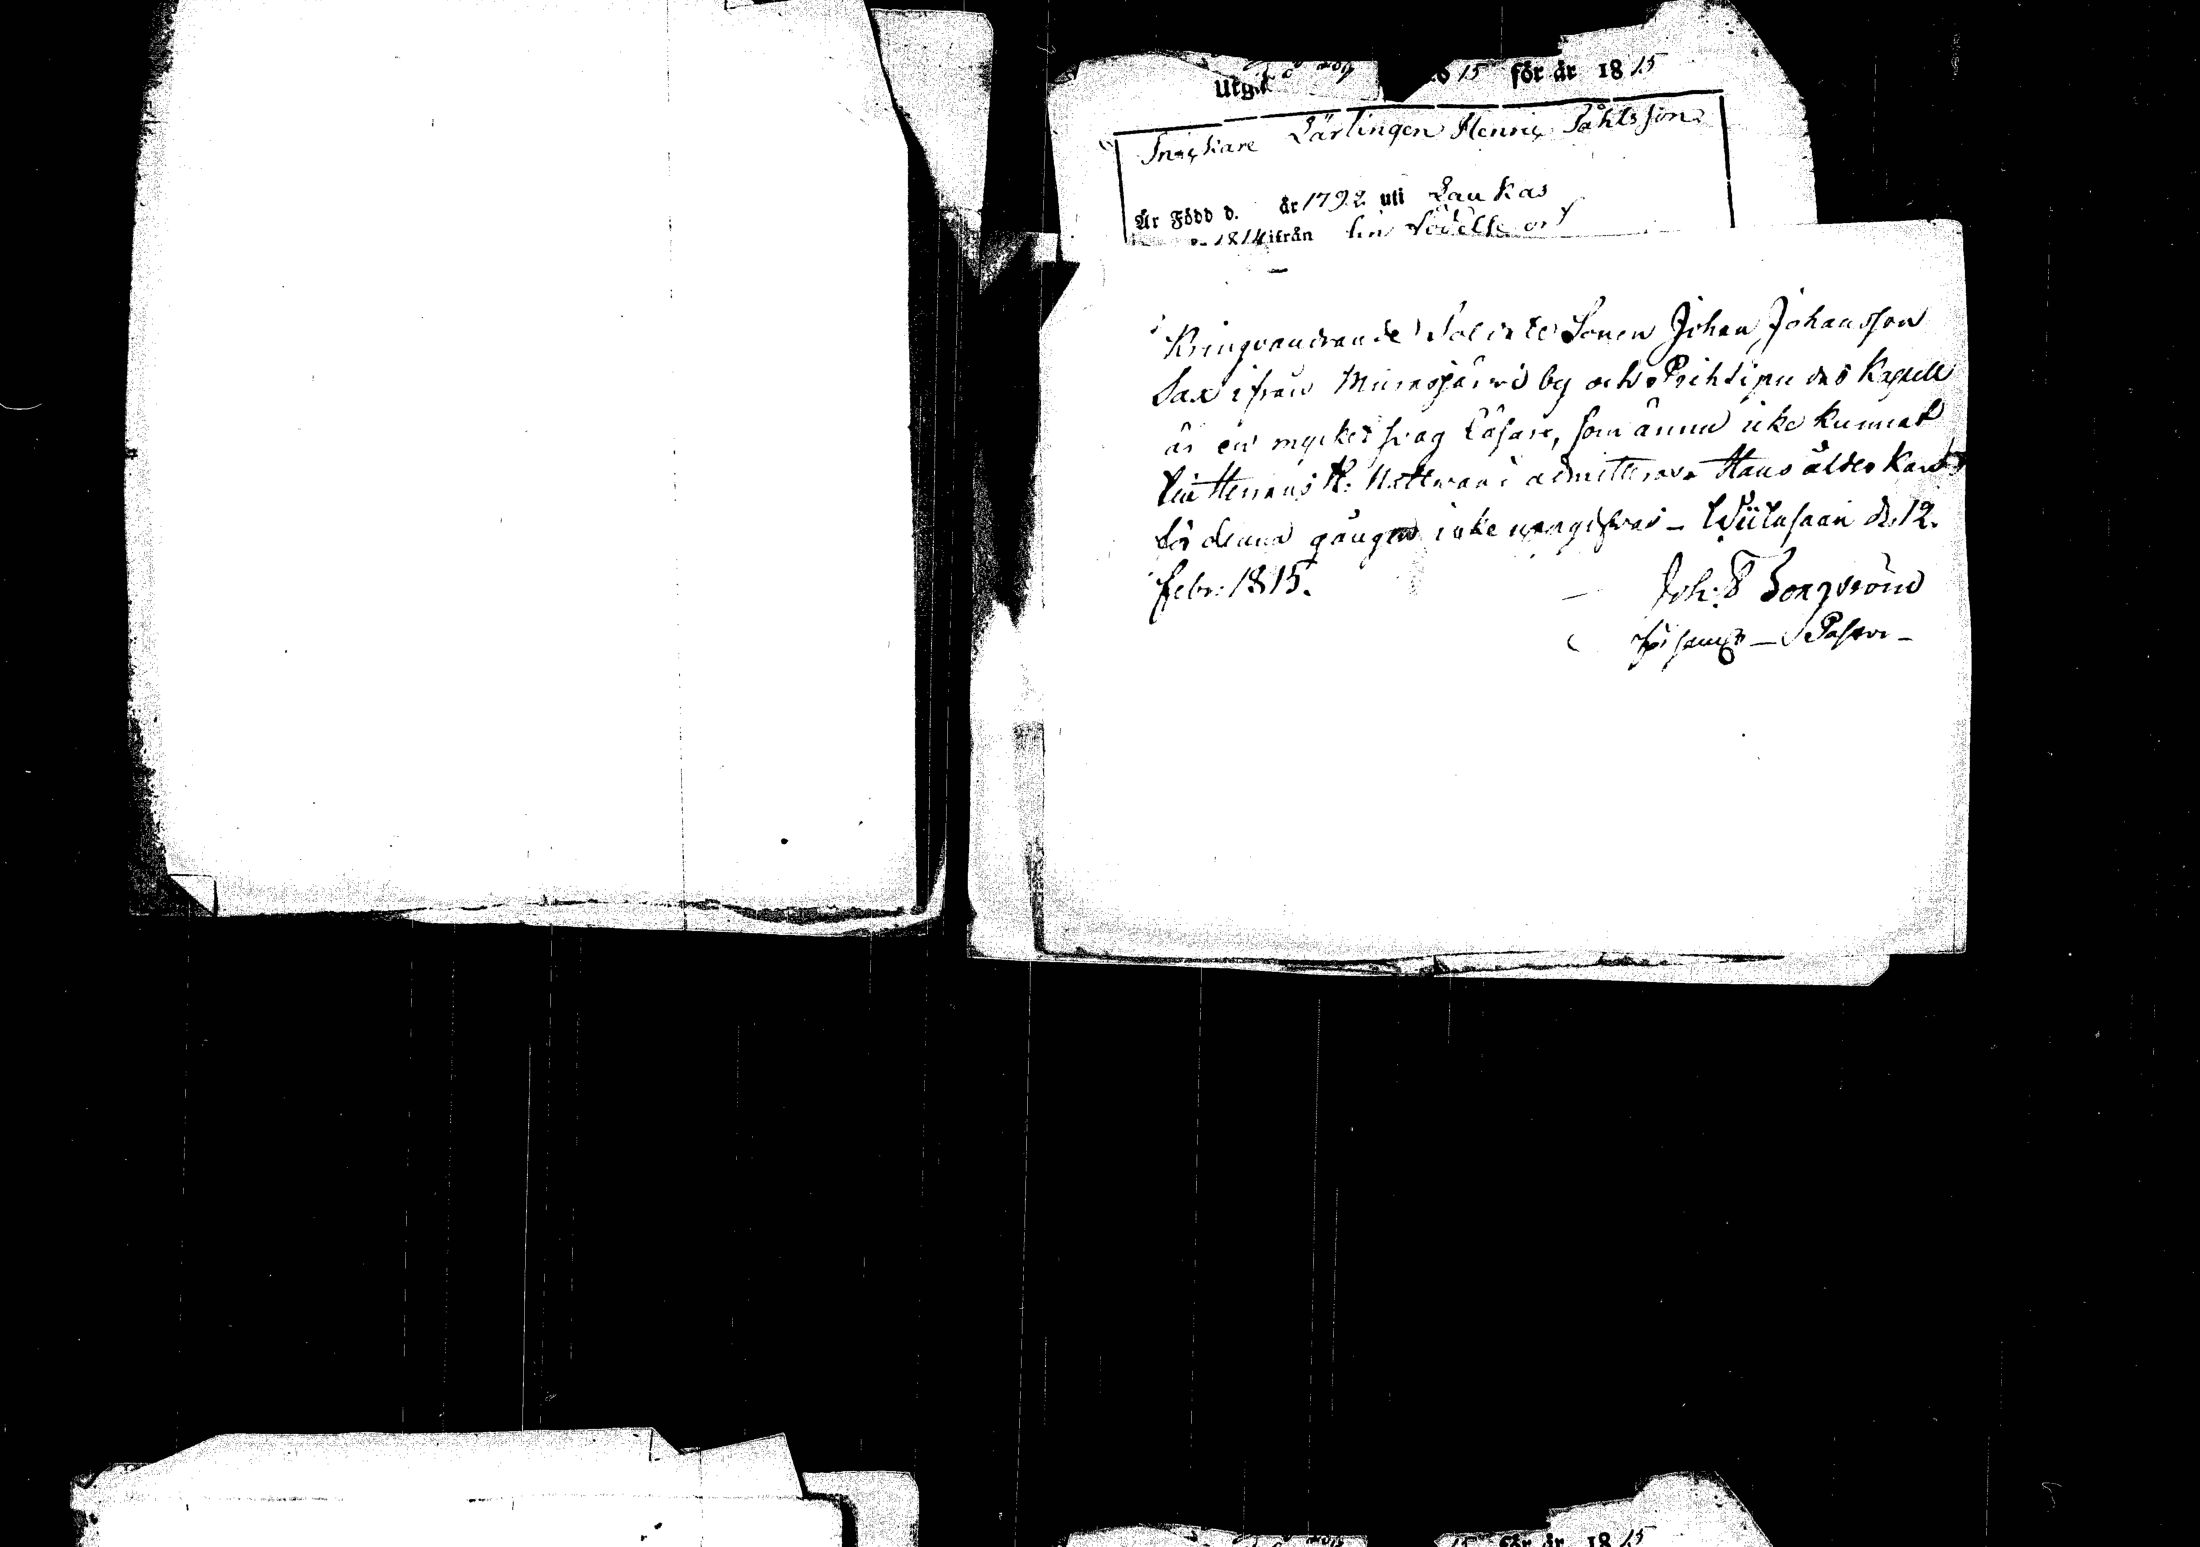 Utg 15 för år 1815
Snickare Lärlingen Henric Påhlsson
Är Född d. år 1792 uti Laukas
1814 ifrån sin födelse ort
Kringvandrande Soldate Sonen Johan Johansson
Sax ifrån Murasjärvi by och Pyhtipu das Kapell
är en mycket svag Läsare, som ännu icke kunnat
till Herrans H. Nattward admitteras. Hans ålder kan
för denna gången icke uppgifvas – Wiitasaari d. 12.
Febr: 1815.
Joh: Bergström
Församl – Pastor –
15 för år 1815